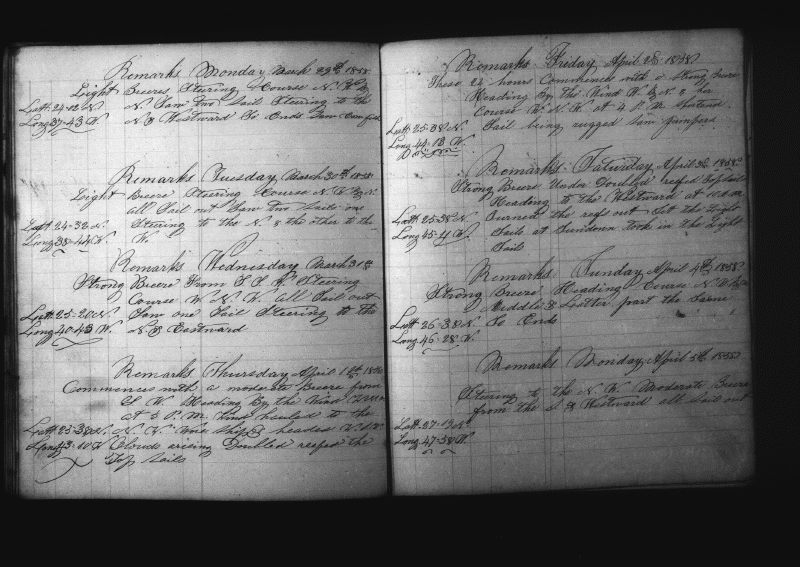 Remarks Monday March 29th 1858
Light Breeze Steering Course N. W. By
N. Saw Two Sail Steering to the
N & Westward So Ends Saw
Latt 24-12 N
Long 37-43 W
Remarks Tuesday March 30th 1858
Light Breeze Steering Course N. W. By N.
all Sail out Saw Two Sails one
Steering to the N. & the other to the
W.
Latt 24-32 N
Long 38-44 W.
Remarks Wednesday March 31st
Strong Breeze From S S W Steering
Course W. N. W. all Sail out
Saw one Sail Steering to the
N & Eastward
Latt 25-20 N
Long 40-43 W.
Remarks Thursday April 1st 1858
Commences with a moderate Breeze from
W. Heading By the Wind
At 5 P.M. Wind hauled to the
N. W. Wore Ship & headed W.S.W.
Clouds arising Doubled reefed the
Top Sails
Latt 25-38 N
Long 43-10 W
Remarks Friday April 2d 1858
These 24 hours Commences with a Strong Breeze
Heading By The Wind W. & N. & her
Course W. N. W. at 4 P. M.
Sail being rugged
Latt 25-38 N.
Long 44-18 W.
Remarks Saturday April 3d 1858
Strong Breeze Under Doubled reefed Topsails
Heading to the Westward at noon
turned the reefs out Set the Light
Sails at Sundown took in the Light
Sails
Latt 25-38 N
Long 45-4 W
Remarks Sunday April 4th 1858
Strong Breeze Heading Course N W
Middle & Latter part the Same
So Ends
Latt 26-38 N
Long 46-28 W.
Remarks Monday April 5th 1858
Steering to the N. W. Moderate Breeze
from the S & Westward all Sail out
Latt 27-19 N
Long 47-58 W.